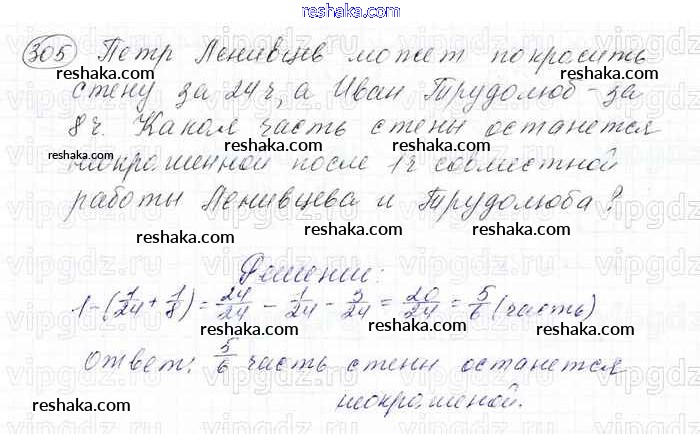 reshaka.com
305 Петр Ленивцев может покрасить
reshaka.com reshaka.com
стену за 24 ч, а Иван Трудолюб - за
8 ч. Какая часть стены останется
reshaka.com reshaka.com
неокрашенной после 1 ч совместной
работы Ленивцева и Трудолюба?
reshaka.com reshaka.com
Решение:
1 - (1/24 + 1/8) = 24/24 - 1/24 - 3/24 = 20/24 = 5/6 (часть)
reshaka.com reshaka.com
Ответ: 5/6 часть стены останется
неокрашеной.
reshaka.com reshaka.com